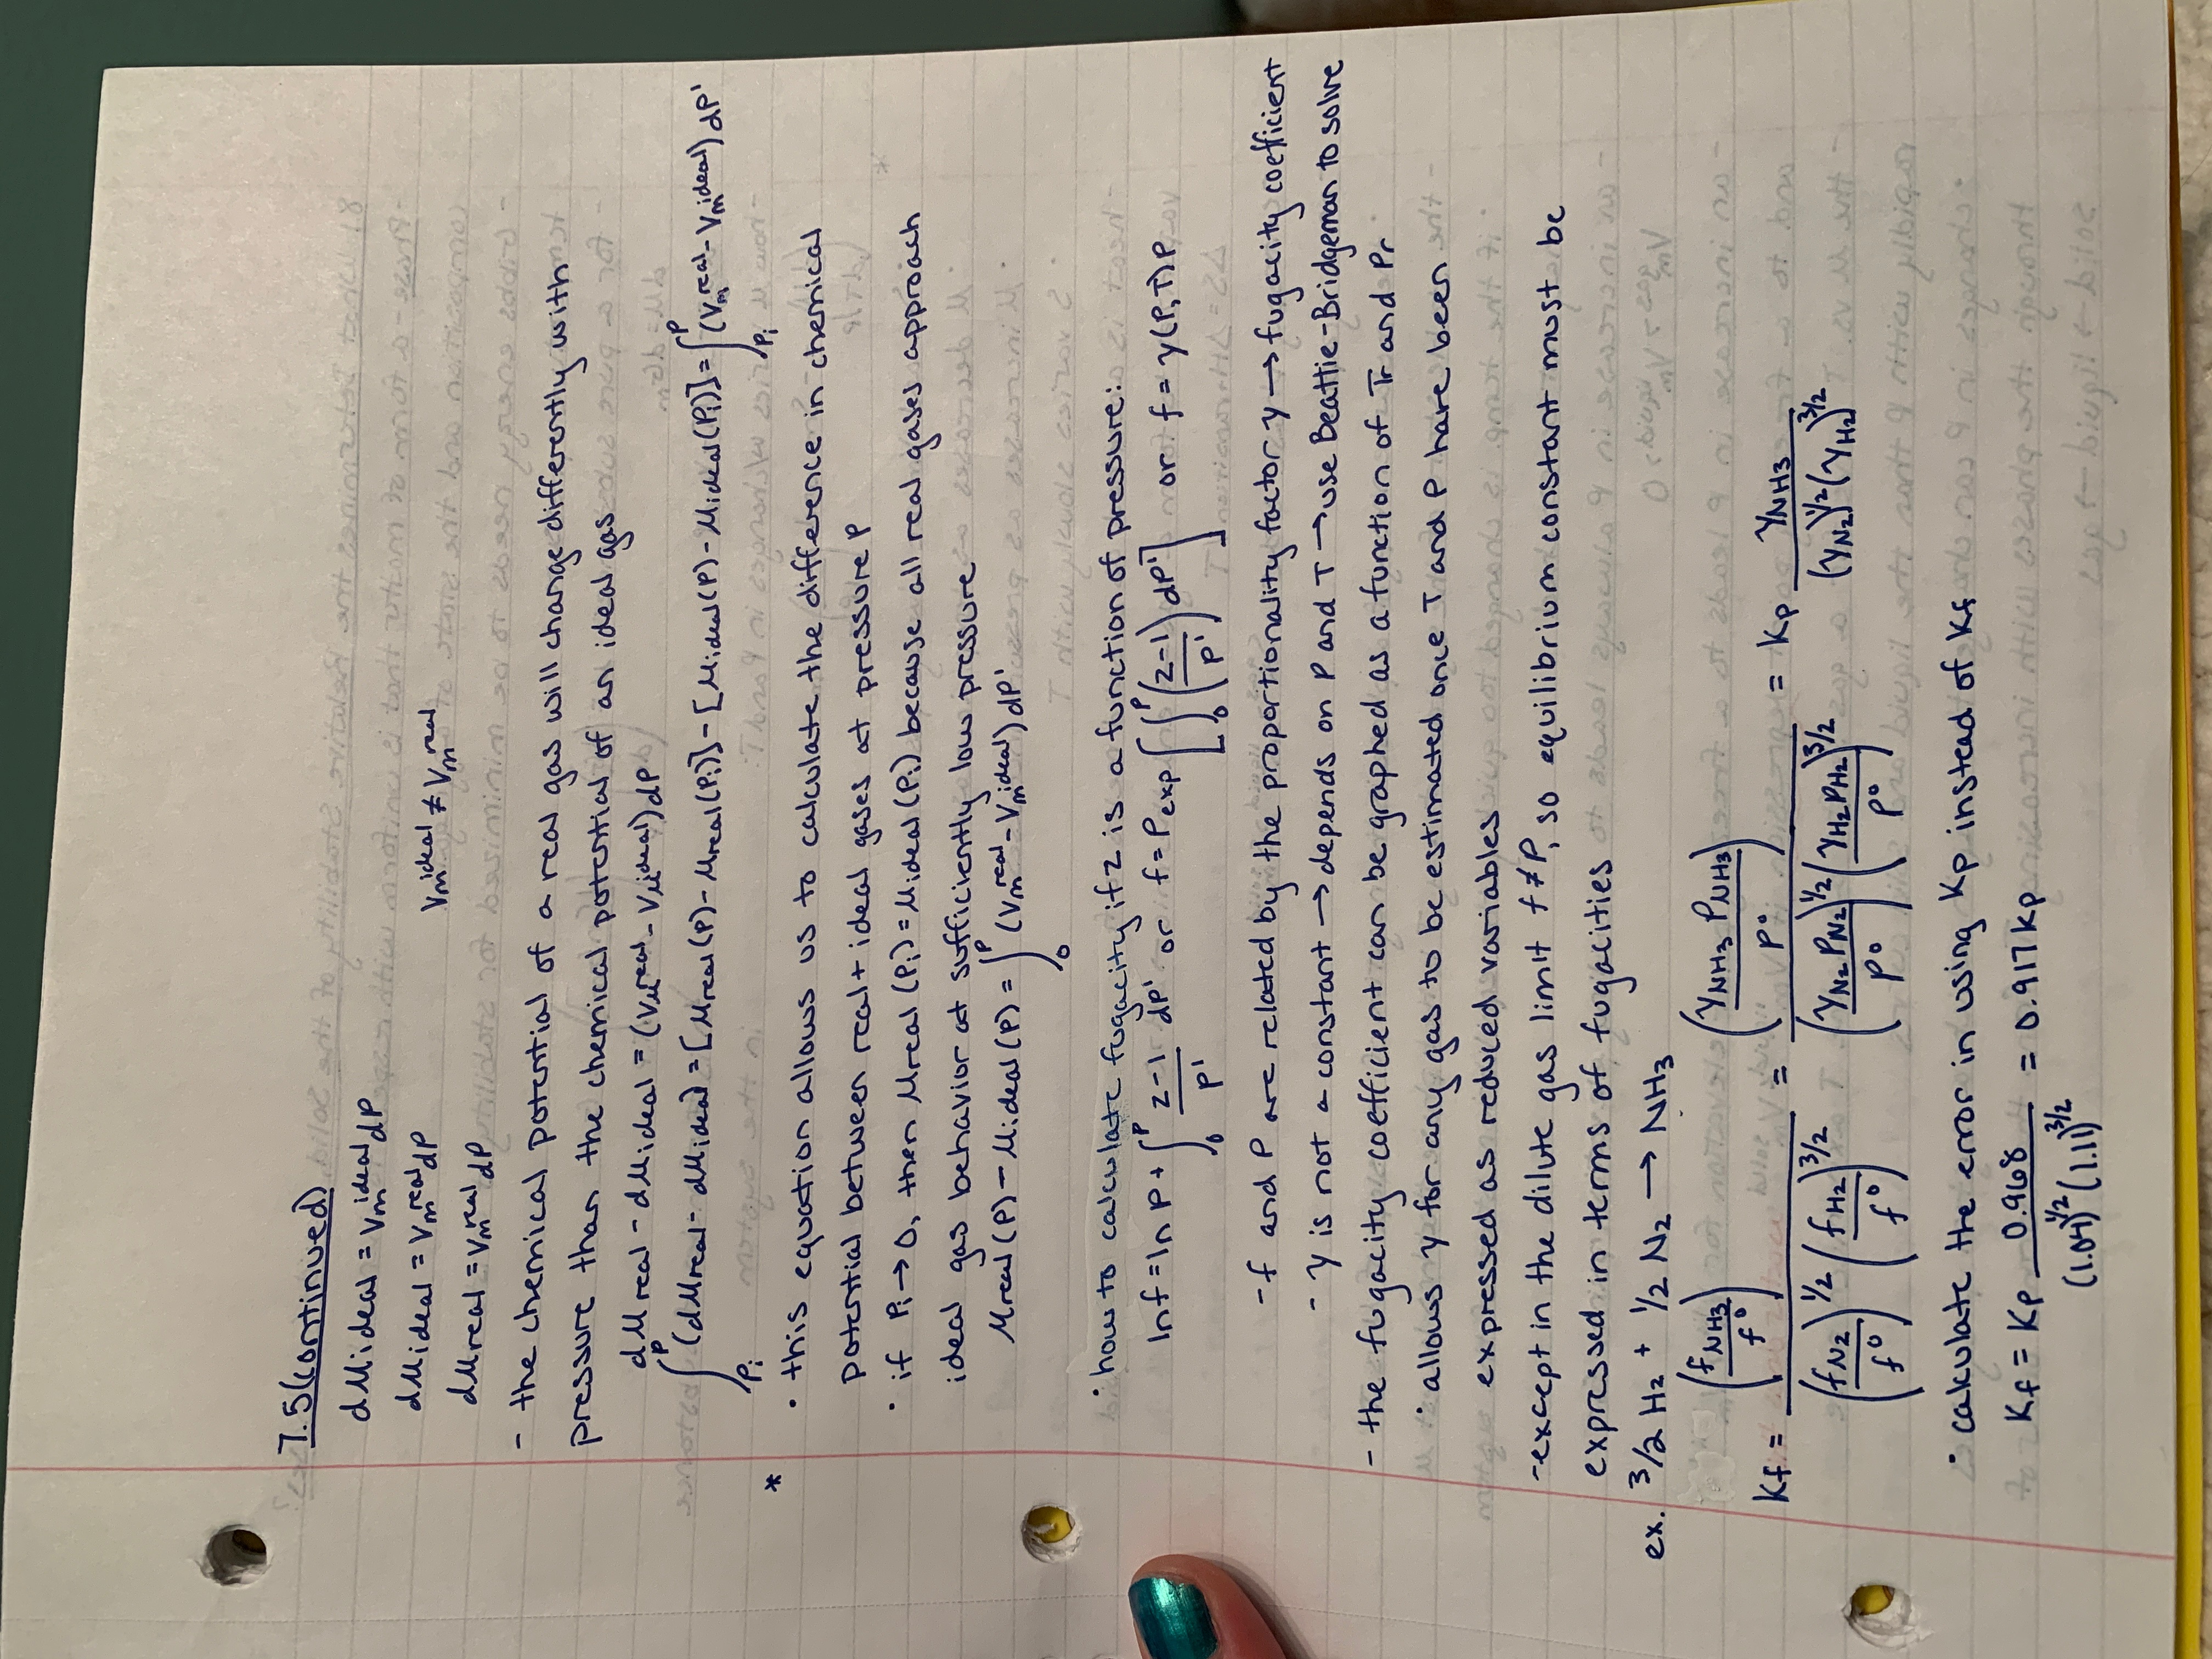 7.5 (continued)
dμideal = Vm^ideal dP
dμideal = Vm^real dP        Vm^ideal ≠ Vm^real
dμreal = Vm^real dP
- the chemical potential of a real gas will change differently with
pressure than the chemical potential of an ideal gas
dμreal - dμideal = (Vm^real - Vm^ideal) dP
∫_Pi^P (dμreal - dμideal) = [μreal(P) - μreal(Pi)] - [μideal(P) - μideal(Pi)] = ∫_Pi^P (Vm^real - Vm^ideal) dP'
*
• this equation allows us to calculate the difference in chemical
potential between real + ideal gases at pressure P
• if Pi → 0, then μreal (Pi) = μideal (Pi) because all real gases approach
ideal gas behavior at sufficiently low pressure
μreal (P) - μideal (P) = ∫_0^P (Vm^real - Vm^ideal) dP'
• how to calculate fugacity if z is a function of pressure:
ln f = ln P + ∫_0^P (z-1)/P' dP' or f = P exp[∫_0^P ((z-1)/P') dP'] or f = γ(P,T)P
- f and P are related by the proportionality factor γ → fugacity coefficient
- γ is not a constant → depends on P and T → use Beattie-Bridgeman to solve
- the fugacity coefficient can be graphed as a function of Tr and Pr
• allows γ for any gas to be estimated once T and P have been
expressed as reduced variables
- except in the dilute gas limit f ≠ P, so equilibrium constant must be
expressed in terms of fugacities
ex. 3/2 H2 + 1/2 N2 → NH3
Kf = (fNH3/f°) / ((fN2/f°)^1/2 (fH2/f°)^3/2) = (γNH3 PNH3/P°) / ((γN2 PN2/P°)^1/2 (γH2 PH2/P°)^3/2) = Kp γNH3 / ((γN2)^1/2 (γH2)^3/2)
• calculate the error in using Kp instead of Kf
Kf = Kp 0.968 / ((1.04)^1/2 (1.11)^3/2) = 0.917 Kp